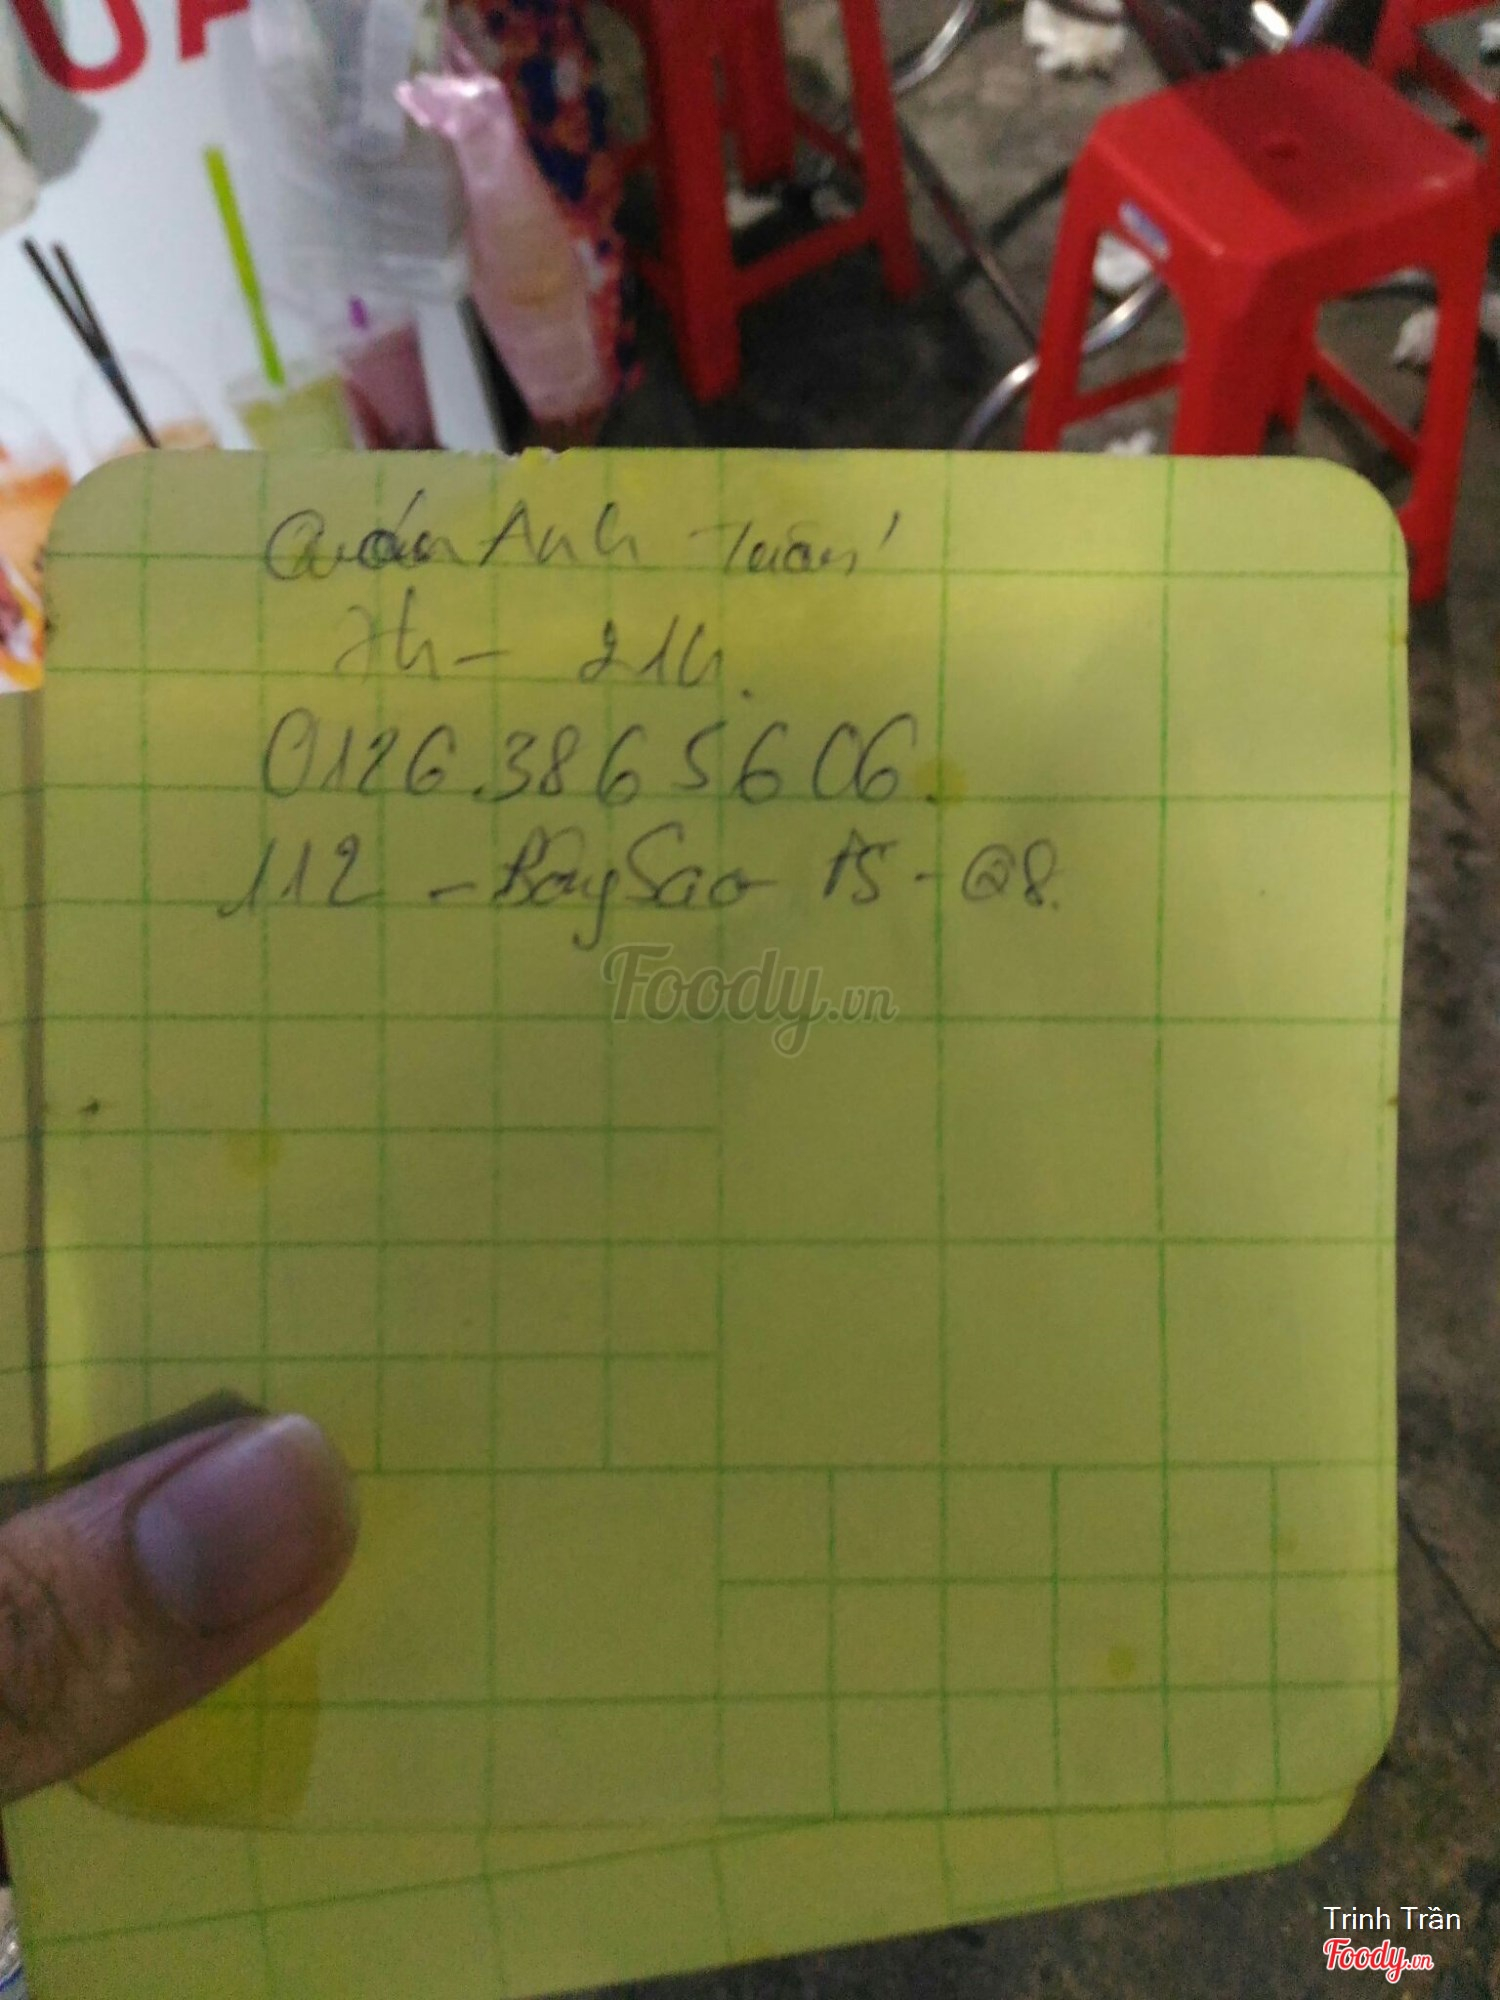 UA
Quán Anh Tuấn
7h - 21h.
0126.3865606.
112 - Bông Sao P5 - Q8.
Foody.vn
Trinh Trần
Foody.vn